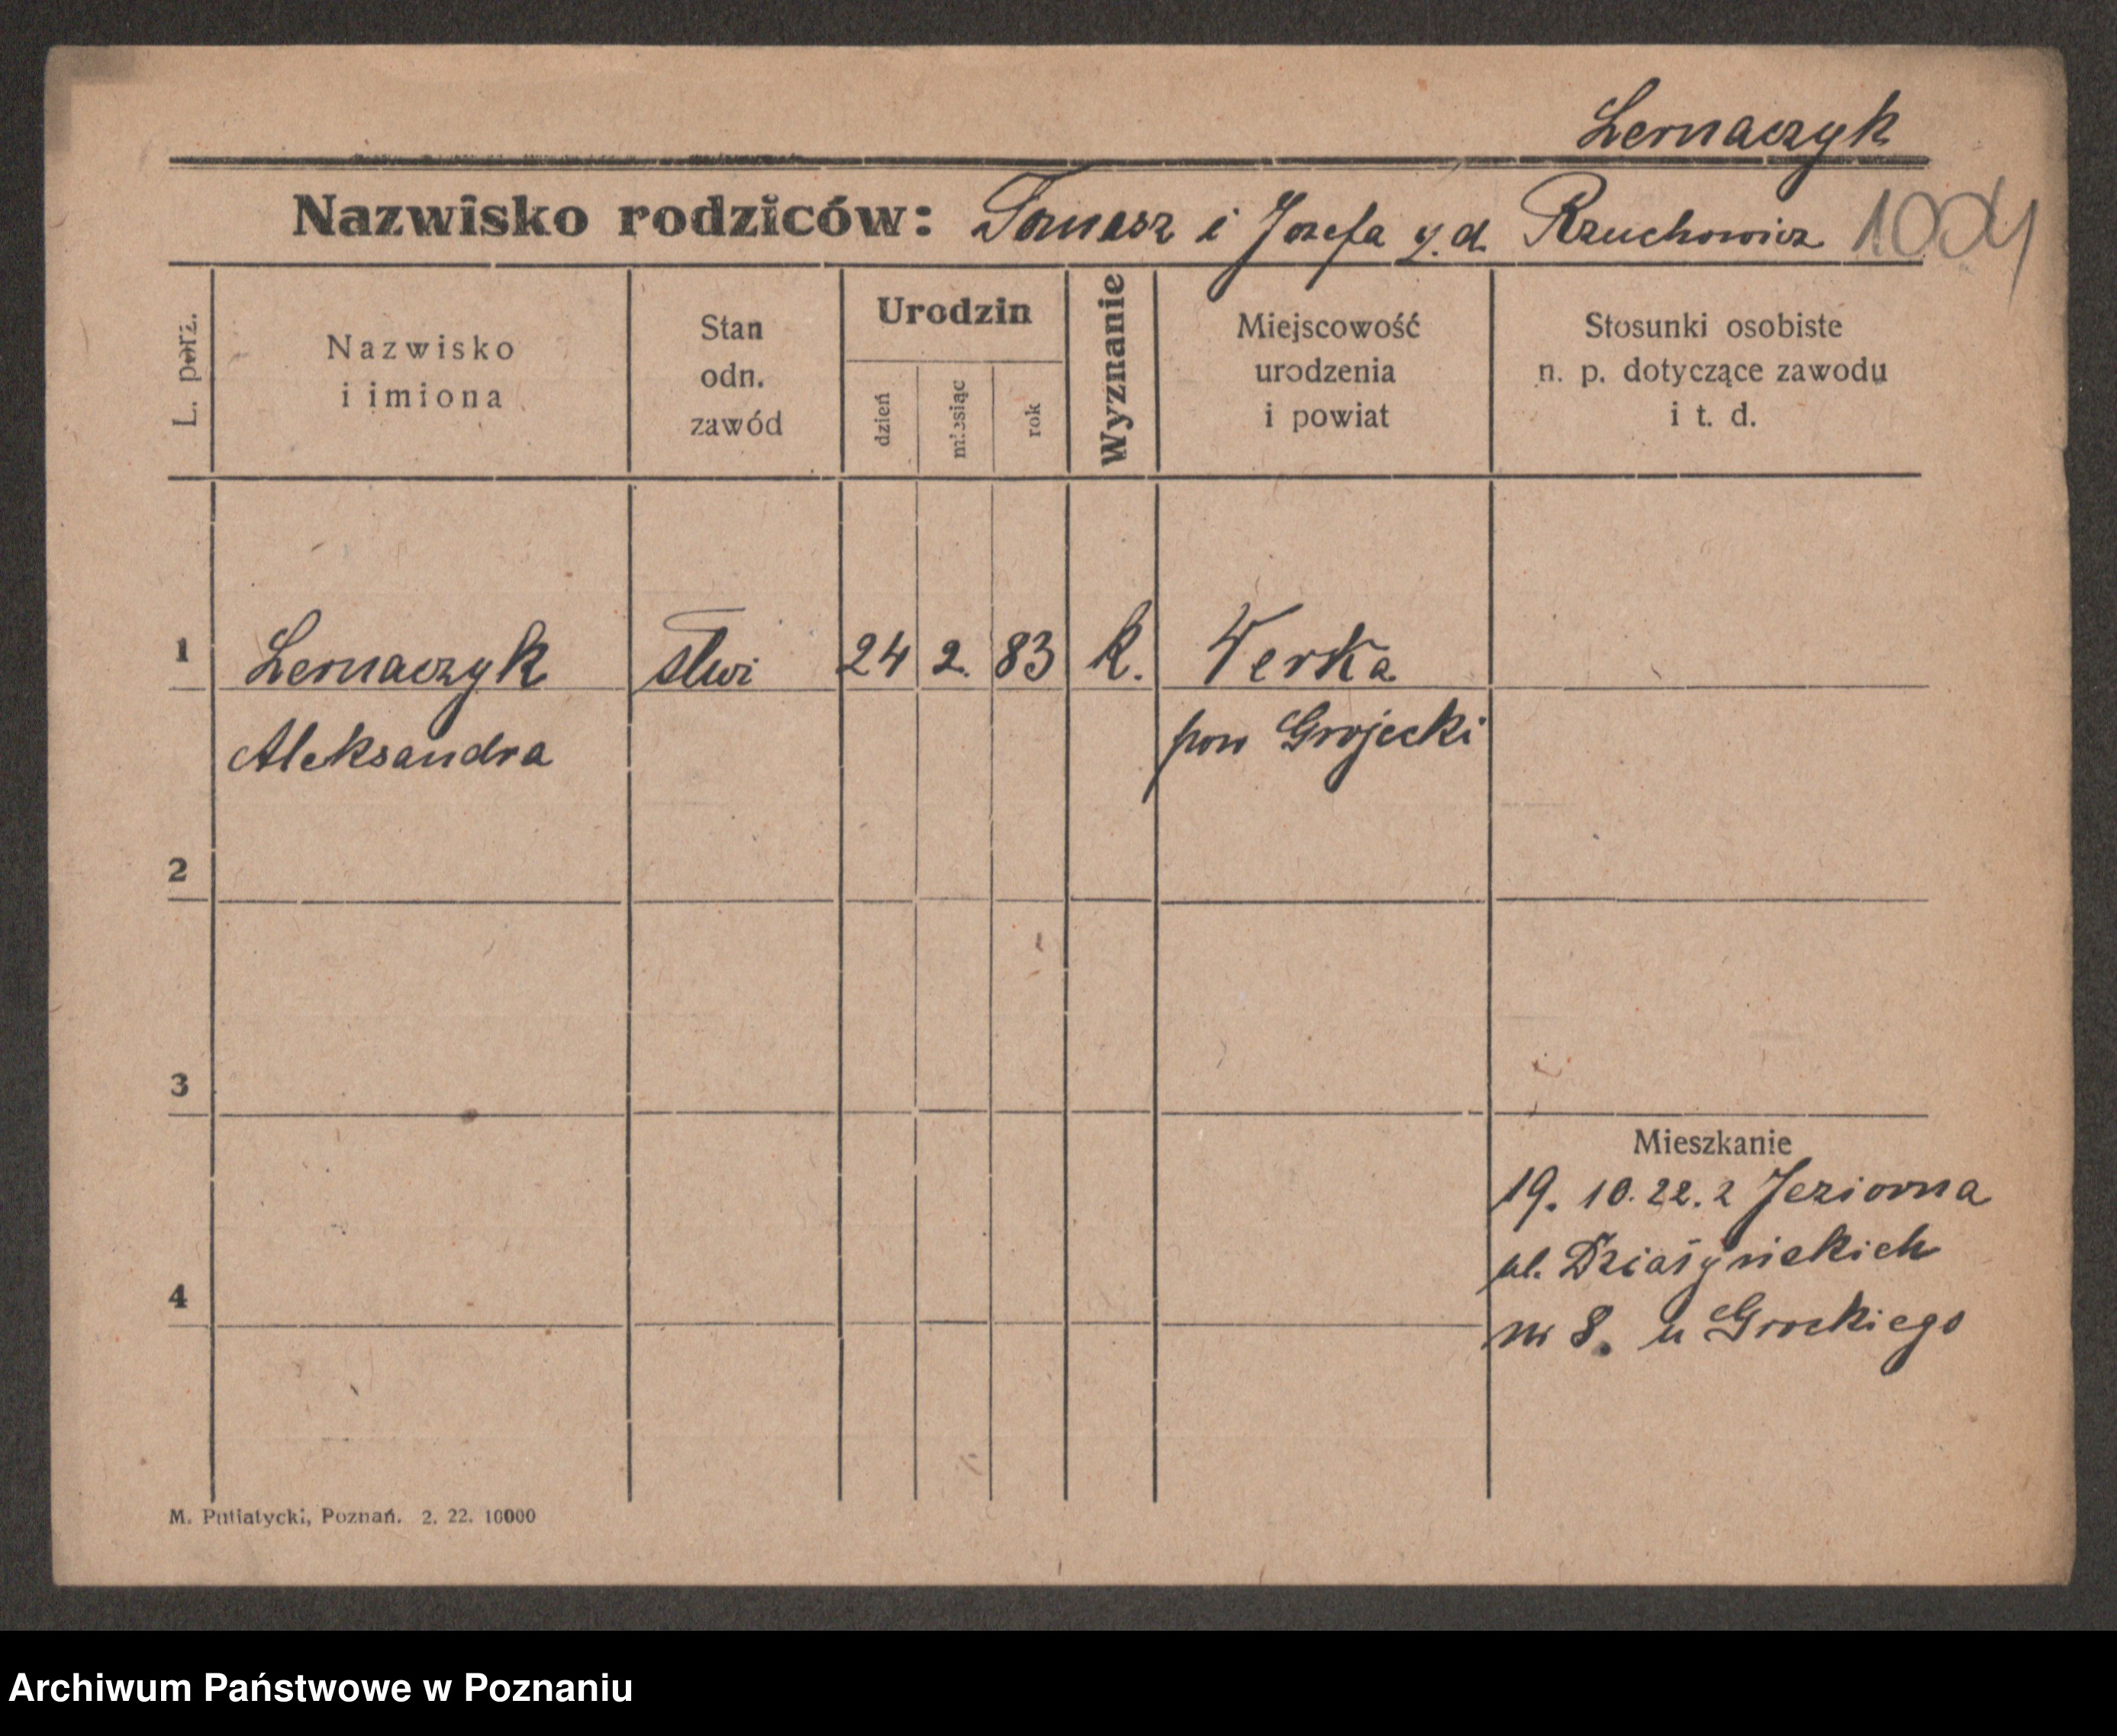 Lernaczyk
Nazwisko rodziców: Tomasz i Jozefa g. d. Rzuchowicz 1004
L. porz.
Nazwisko
i imiona
Stan
odn.
zawód
Urodzin
dzień
miesiąc
rok
Wyznanie
Miejscowość
urodzenia
i powiat
Stosunki osobiste
n. p. dotyczące zawodu
i t. d.
1 Lernaczyk 24 2. 83 k. Werka
Aleksandra pow Grojecki
2
3
Mieszkanie
19. 10. 22. z Jeziorna
ul. Działynskich
4
nr 8. u Grockiego
M. Putiatycki, Poznań. 2. 22. 10000
Archiwum Państwowe w Poznaniu